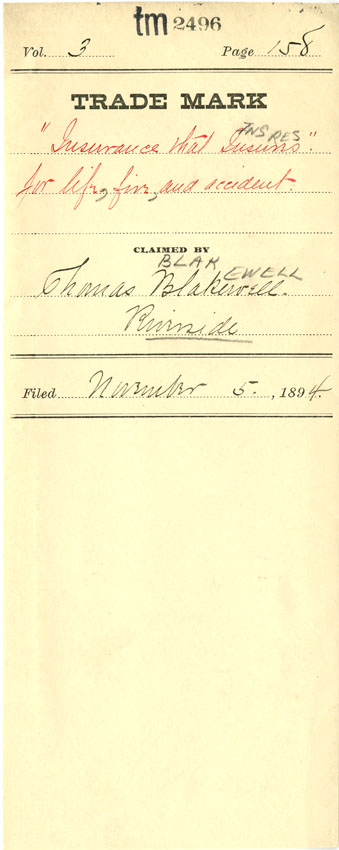 tm 2496
Vol. 3 Page 158
TRADE MARK
INSRES
"Insurance that Insures".
for life, fire, and accident.
CLAIMED BY
BLAKEWELL
Thomas Blakewell.
Riverside
Filed November 5. , 1894.